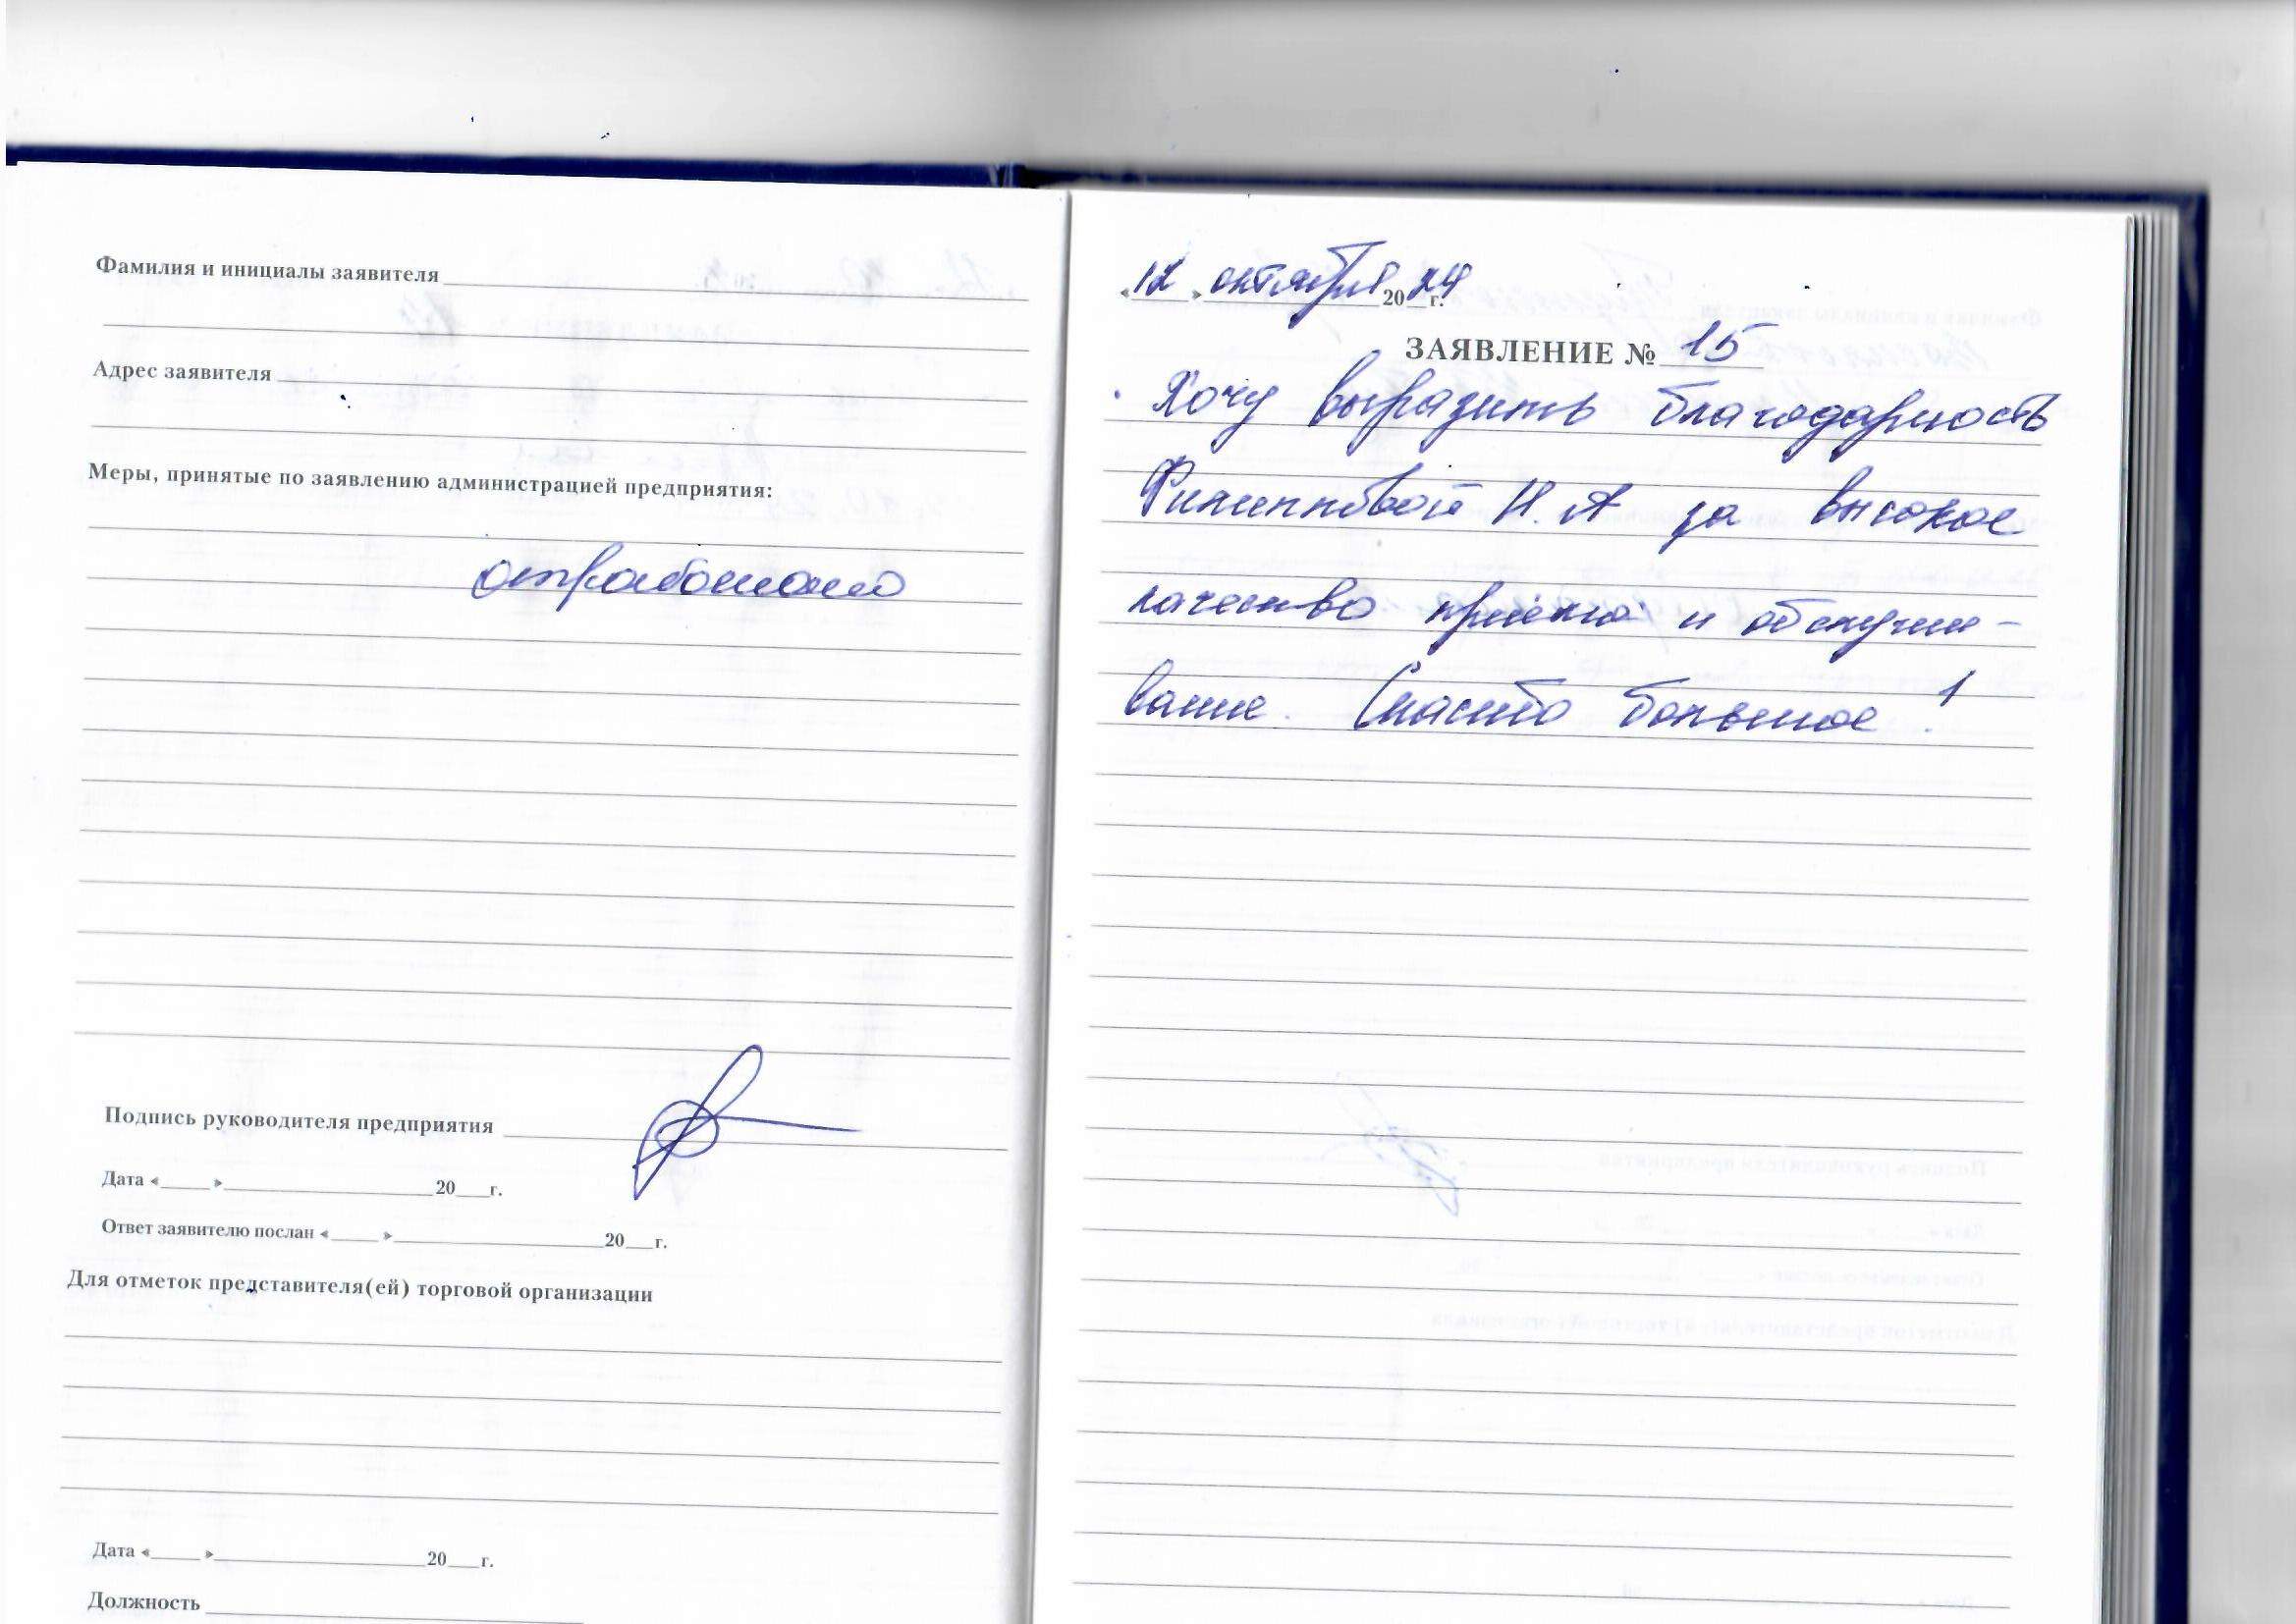 Фамилия и инициалы заявителя
Адрес заявителя
Меры, принятые по заявлению администрацией предприятия:
отработано
Подпись руководителя предприятия
Дата « » 20 г.
Ответ заявителю послан « » 20 г.
Для отметок представителя(ей) торговой организации
Дата « » 20 г.
Должность
«12» октября 2024 г.
ЗАЯВЛЕНИЕ № 15
Хочу выразить благодарность
Филипповой Н.А за высокое
качество приёма и обслужи-
вание. Спасибо большое!